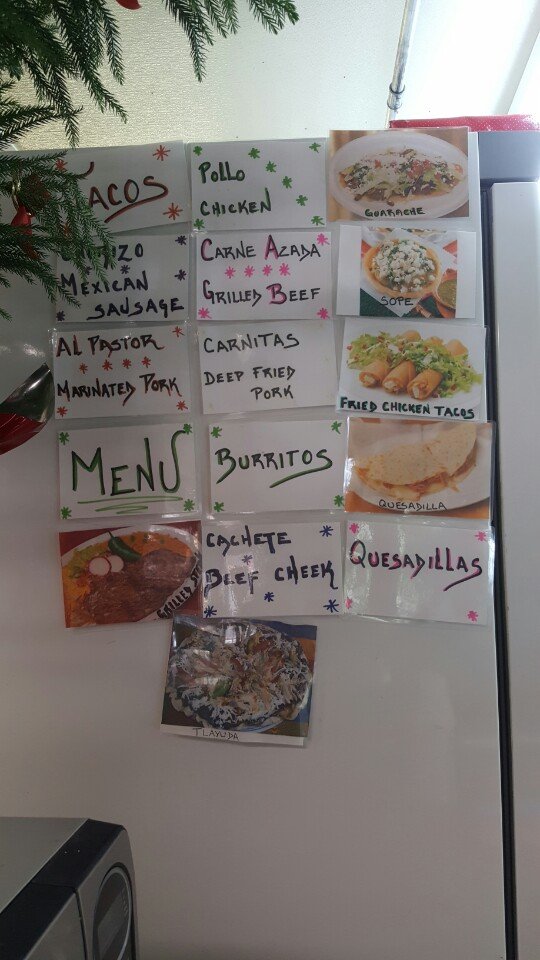 TACOS
POLLO
CHICKEN
GUARACHE
MEXICAN
SAUSAGE
CARNE AZADA
GRILLED BEEF
SOPE
AL PASTOR
MARINATED PORK
CARNITAS
DEEP FRIED
PORK
FRIED CHICKEN TACOS
MENU
BURRITOS
QUESADILLA
GRILLED
CACHETE
BEEF CHEEK
QUESADILLAS
TLAYUDA